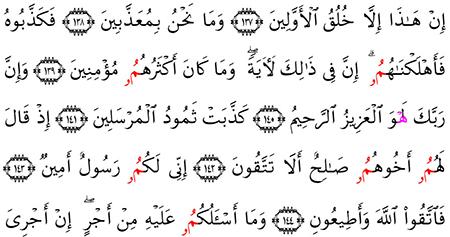 إِنْ هَـٰذَا إِلَّا خُلُقُ الْأَوَّلِينَ ﴿١٣٧﴾ وَمَا نَحْنُ بِمُعَذَّبِينَ ﴿١٣٨﴾ فَكَذَّبُوهُ
فَأَهْلَكْنَـٰهُمُۥٓ ۗ إِنَّ فِى ذَٰلِكَ لَأٓيَةً ۖ وَمَا كَانَ أَكْثَرُهُمُۥ مُؤْمِنِينَ ﴿١٣٩﴾ وَإِنَّ
رَبَّكَ لَهْوَ الْعَزِيزُ الرَّحِيمُ ﴿١٤٠﴾ كَذَّبَتْ ثَمُودُ الْمُرْسَلِينَ ﴿١٤١﴾ إِذْ قَالَ
لَهُمُۥٓ أَخُوهُمُۥ صَـٰلِحٌ أَلَا تَتَّقُونَ ﴿١٤٢﴾ إِنِّى لَكُمُۥ رَسُولٌ أَمِينٌ ﴿١٤٣﴾
فَاتَّقُوا اللَّهَ وَأَطِيعُونِ ﴿١٤٤﴾ وَمَا أَسْـَٔلُكُمُۥ عَلَيْهِ مِنْ أَجْرٍ ۖ إِنْ أَجْرِىَ